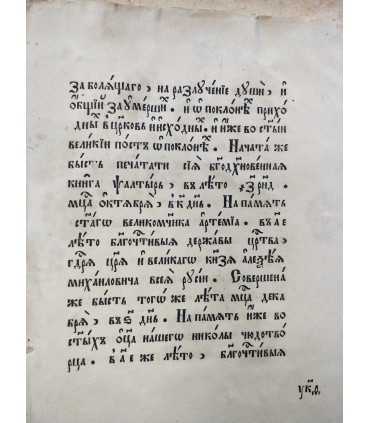 за болѧ́щаго, на разлꙋче́нїе дꙋшѝ, и҆
ѻ҆́бщїй за ᲂу҆ме́ршиⷯ. и҆ ѡ҆ поклонѣⷯ прихо́
дныⷯ в̾ цр҃ковь и҆ и҆схо́дныⷯ. и҆ и҆́же во ст҃ы́и
вели́кїи по́стъ ѡ҆ покло́нѣⷯ. Нача́та же
бы́сть печа́тати сїѧ̀ бг҃одхн҃ове́ннаѧ
кни́га ѱалты́рь, въ лѣ́то ҂зр҃нд.
мцⷭ҇а ѻ҆ктѧ́брѧ, в҃ к҃ дн҃ь. На па́мѧть
ст҃а́гѡ великомч҃ника а҆рте́мїа. въ а҃ е
лѣ́то бл҃гочⷭ҇ти́выѧ держа́вы црⷭ҇тва,
гдⷭ҇рѧ цр҃ѧ̀ и҆ вели́кагѡ кн҃зѧ а҆леѯѣ́ѧ
миха́иловича всеѧ̀ рꙋсі́и. Соверше́на
же бы́сть тогѡ́же лѣ́та мцⷭ҇а дека
брѧ̀, въ ѕ҃ дн҃ь. На па́мѧть и҆́же во
ст҃ы́хъ ѻ҆ц҃а̀ на́шегѡ нико́лы чюдотво́
рца. в҃ а҃ е же лѣ́то, бл҃гочⷭ҇ти́выѧ